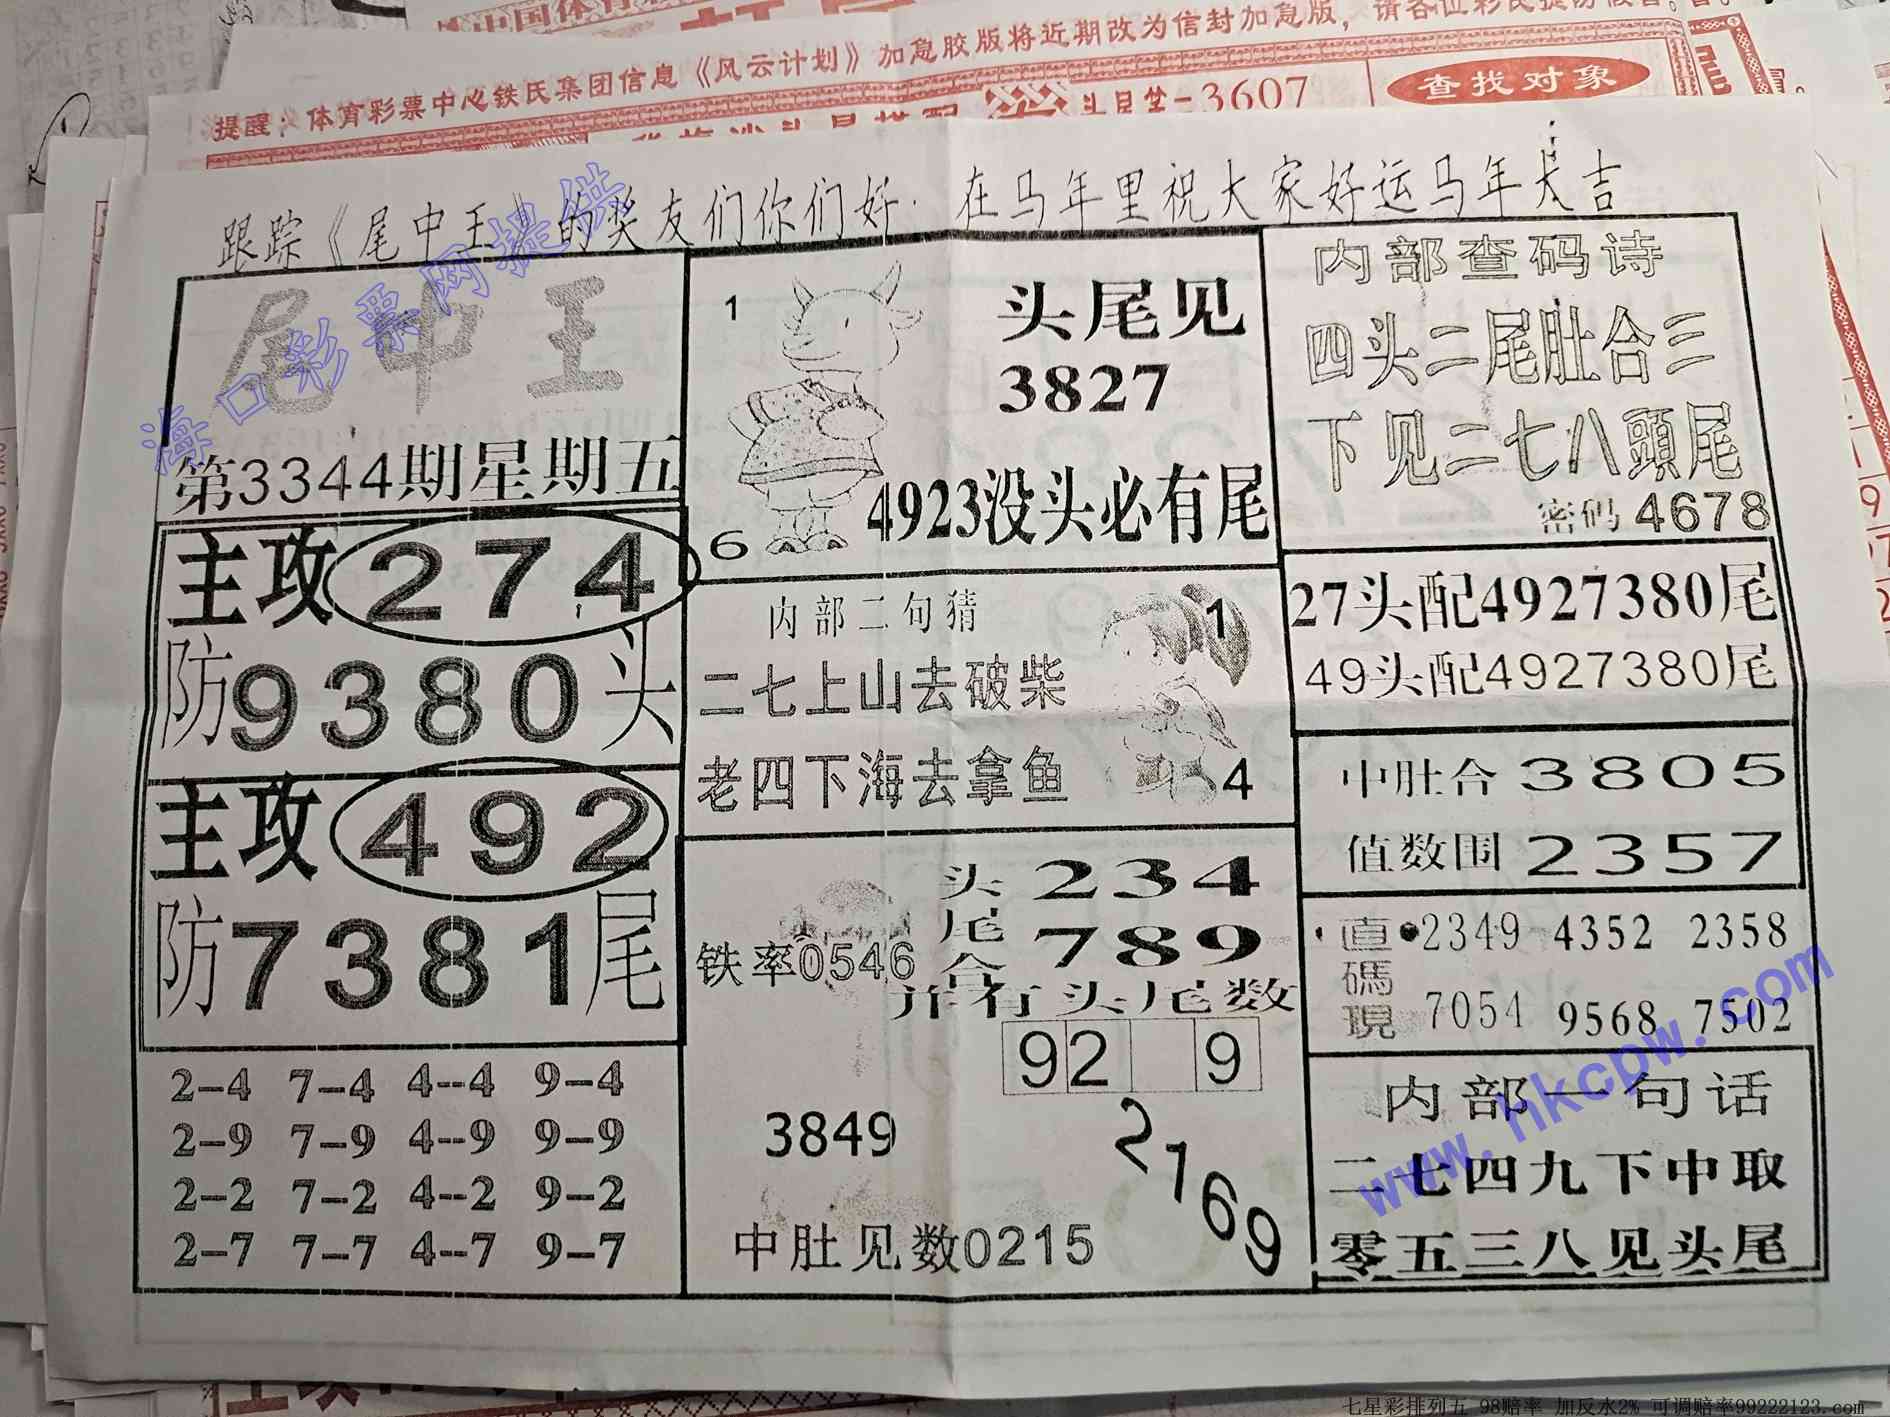 提醒：体育彩票中心铁氏集团信息《风云计划》加急胶版将近期改为信封加急版，请各位彩民提防假冒
3607
查找对象
跟踪《尾中王》的奖友们你们好．在马年里祝大家好运马年大吉
尾中王
第3344期星期五
主攻274
防9380头
主攻492
防7381尾
2-4 7-4 4--4 9-4
2-9 7-9 4--9 9-9
2-2 7-2 4--2 9-2
2-7 7-7 4--7 9-7
1
6
头尾见
3827
4923没头必有尾
内部二句猜
二七上山去破柴
老四下海去拿鱼
1
4
铁率0546
头尾合
234
789
并有头尾数
92 9
3849
2169
中肚见数0215
内部查码诗
四头二尾肚合三
下见二七八頭尾
密码 4678
27头配4927380尾
49头配4927380尾
中肚合 3805
值数围 2357
直碼現
2349 4352 2358
7054 9568 7502
内部一句话
二七四九下中取
零五三八见头尾
海口彩票网提供
www.hkcpw.com
七星彩排列五 98赔率 加反水2% 可调赔率99222123.com